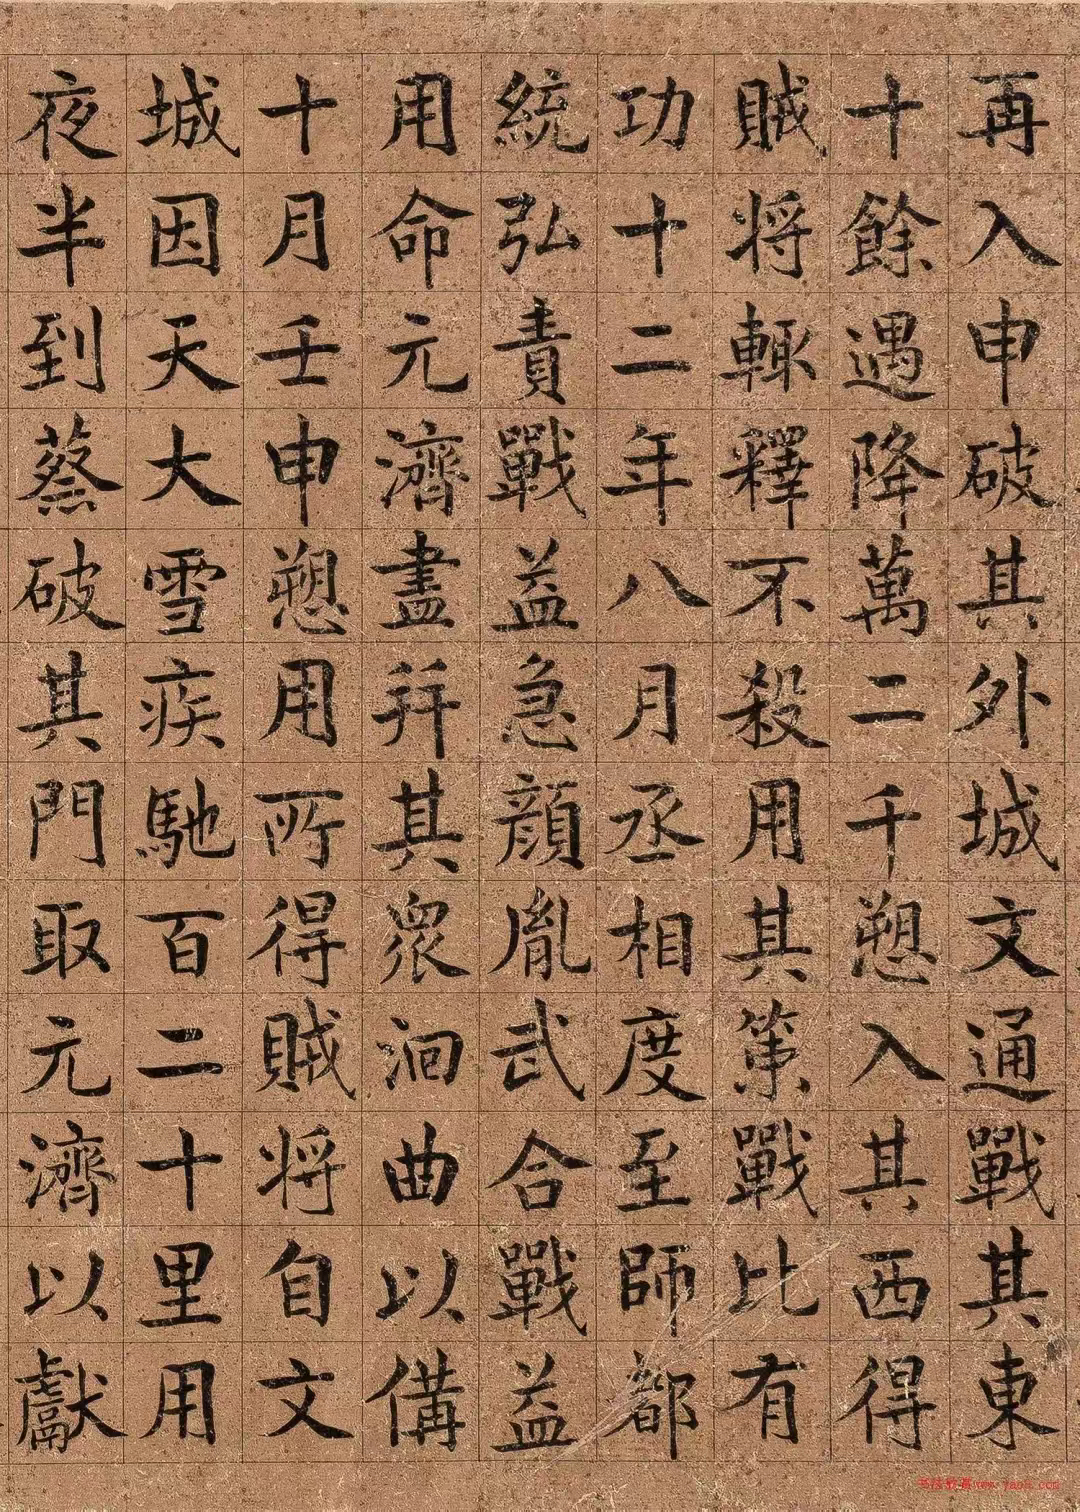 再入申破其外城文通戰其東
十餘遇降萬二千愬入其西得
賊將輙釋不殺用其策戰比有
功十二年八月丞相度至師都
統弘責戰益急顔胤武合戰益
用命元濟盡并其衆洄曲以備
十月壬申愬用所得賊將自文
城因天大雪疾馳百二十里用
夜半到蔡破其門取元濟以獻